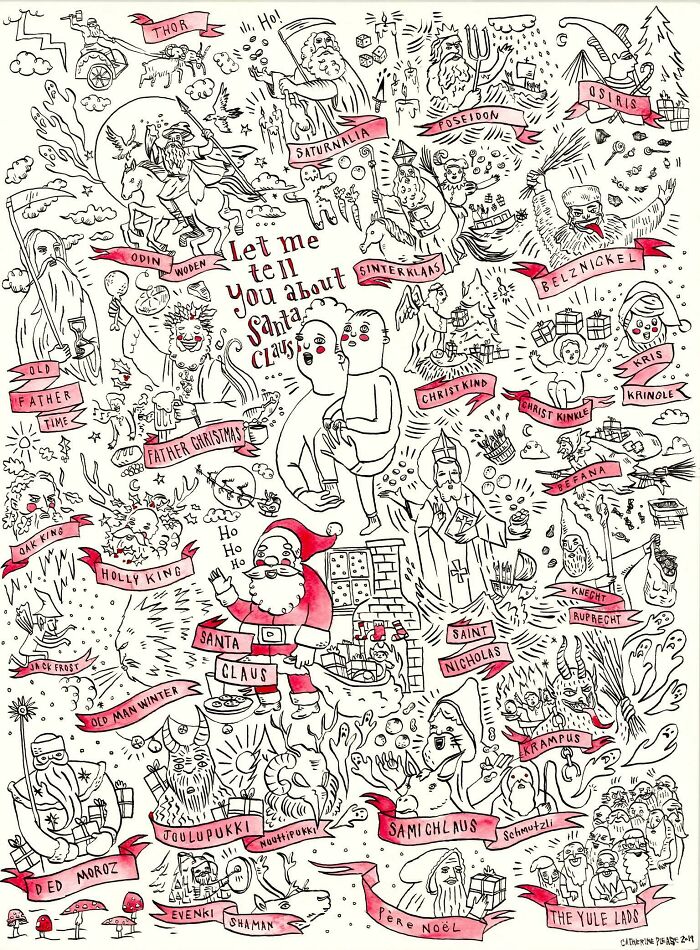 THOR
Ho!
SATURNALIA
POSEIDON
OSIRIS
ODIN
WODEN
Let me
tell
you about
Santa
Claus
SINTERKLAAS
BELZNICKEL
OLD
FATHER
TIME
FATHER CHRISTMAS
CHRISTKIND
CHRIST KINKLE
KRIS
KRINGLE
BEFANA
OAK KING
HOLLY KING
Ho
Ho
Ho
SANTA
CLAUS
SAINT
NICHOLAS
KNECHT
RUPRECHT
JACK FROST
OLD MAN WINTER
KRAMPUS
DED MOROZ
JOULUPUKKI
NUUTTIPUKKI
SAMICHLAUS
Schmutzli
EVENKI
SHAMAN
PÈRE NOËL
THE YULE LADS
CATHERINE PLEASE 2019